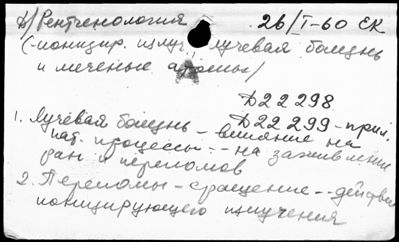 Д/Рентгенология 26/I-60 ЕК
(-ионизир. излуч., лучевая болезнь
и меченые атомы)
Д22298
Д22299-прил.
1. Лучевая болезнь - влияние на
пат. процессы -- на заживление
ран и переломов
2. Переломы - сращение -- действие
ионизирующего излучения